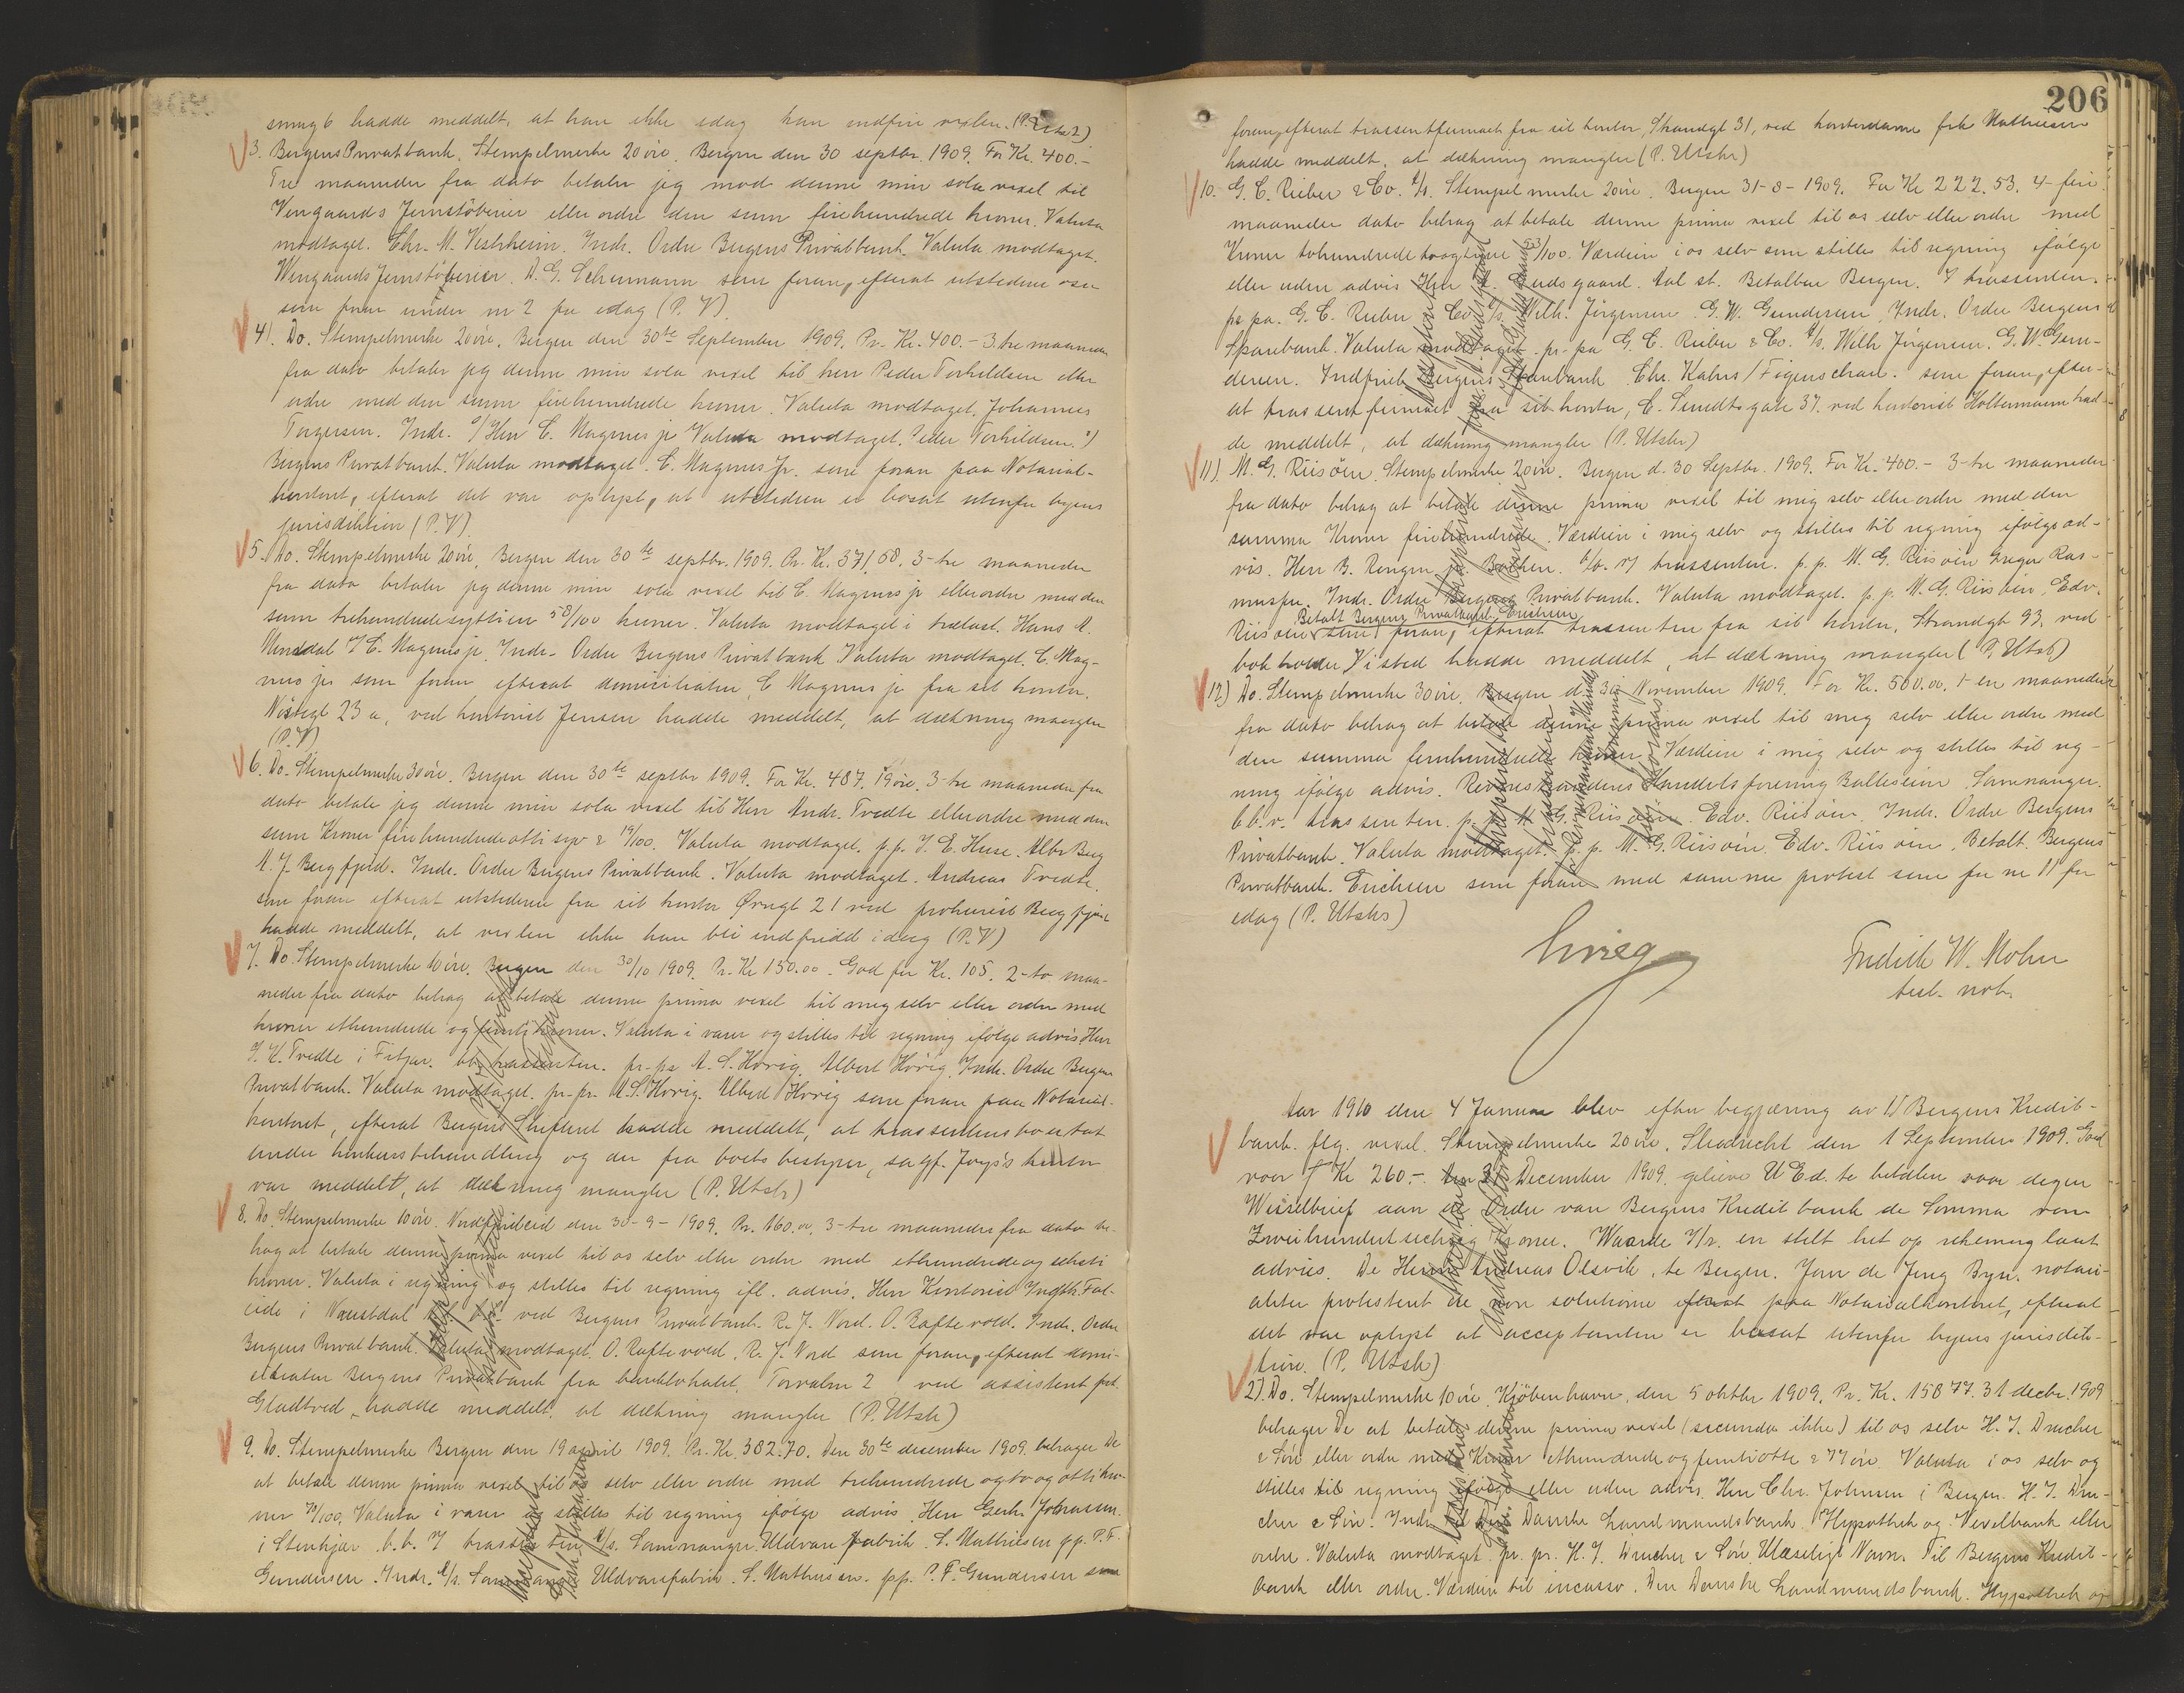 smug 6 hadde meddelt, at han ikke idag kan indfri vexlen. (P. Utskr)
3. Bergens Privatbank. Stempelmerke 20 øre. Bergen den 30 septbr. 1909. For Kr. 400.-
Tre maaneder fra dato betaler jeg mod denne min sola vexel til
Wingaards Jernstöberier eller ordre den sum firehundrede kroner. Valuta
modtaget. Chr. M. Vestrheim. Indr. Ordre Bergens Privatbank. Valuta modtaget.
Wingaards Jernstöberier. A. G. Schumann som foran, efterat utstederen
som foran under nr 2 for idag (P. V)
4). Do. Stempelmerke 20 øre. Bergen den 30te September 1909. Pr. Kr. 400.- 3 tre maaneder
fra dato betaler jeg denne min sola vexel til herr Peder Torkildsen eller
ordre med den summ firehundrede kroner. Valuta modtaget. Johannes
Torgersen. Indr. Herr C. Magnus jr Valuta modtaget. Peder Torkildsen.
Bergens Privatbank. Valuta modtaget. C. Magnus Jr. som foran paa Notarial-
kontoret, efterat det var oplyst, at utstederen er bosat utenfor byens
jurisdiktion (P. V).
5. Do. Stempelmerke 20 øre. Bergen den 30te septbr. 1909. Pr. Kr. 371,58. 3- tre maaneder
fra dato betaler jeg denne min sola vexel til C. Magnus jr eller ordre med den
sum trehundredesyttien 58/100 kroner. Valuta modtaget i trælast. Hans A.
C. Magnus jr. Indr. Ordre Bergens Privatbank Valuta modtaget. C. Mag-
nus jr som foran efterat domiciliaten, C Magnus jr fra sit kontor,
Nöstegt 23 a, ved kontorist Jensen hadde meddelt, at dækning mangler
(P. V)
6. Do. Stempelmerke 30 øre. Bergen den 30te septbr 1909. For Kr. 487,19 øre. 3- tre maaneder fra
dato betaler jeg denne min sola vexel til Herr Andr. Tvedte eller ordre med den
sum Kroner firehundredeottisyv & 19/100. Valuta modtaget. p.p. J. E. Huse. Albr Berg
A. J. Bergfjord. Indr. Ordre Bergens Privatbank. Valuta modtaget. Andreas Tvedte.
som foran efterat utstederen fra sit kontor Øvregt 21 ved prokurist Bergfjord
hadde meddelt, at vexlen ikke kan bli indfridd idag (P. V)
7. Do. Stempelmerke 10 øre. Bergen den 30/10 1909. Pr. Kr 150.00. God for Kr. 105. 2- to maa-
neder fra dato behag at betale denne prima vexel til mig selv eller ordre med
kroner ethundrede og femti kroner. Valuta i varer og stilles til regning ifölge advis. Herr
J. K. Tvedte i Fitjar. bb. trassenten. pr. pa A. S. Hovig. Albert Hovig. Indr. Ordre Bergens
Privatbank. Valuta modtaget. pr. pr. A. S. Hovig. Albert Hovig som foran paa Notarial-
kontoret, efterat Bergens Skifteret hadde meddelt, at trassentens bo er tat
under konkursbehandling og der fra boets bestyrer, sagf. Joys's kontor
var meddelt, at dækning mangler (P. Utskr)
8. Do. Stempelmerke 10 øre. Nordfjordeid den 30-9-1909. Pr. 160.00. 3- tre maaneder fra dato be-
hag at betale denne prima vexel til os selv eller ordre med ethundrede og seksti
kroner. Valuta i regning og stilles til regning ifl. advis. Herr Kontorist Ingbr. Fal-
eide i Naustdal. ved Bergens Privatbank. R. J. Nord. O. Raftevold. Indr. Ordre
Bergens Privatbank. Valuta modtaget. O. Raftevold. R. J. Nord som foran, efterat domi-
ciliaten Bergens Privatbank fra banklokalet, Torvalm 2 ved assistent frk.
Gladtved, hadde meddelt, at dækning mangler (P. Utskr)
9. Do. Stempelmerke Bergen den 19 april 1909. Pr. Kr. 382.70. Den 30te desember 1909 behager De
at betale denne prima vexel til os selv eller ordre med trehundrede og to og otti kro-
ner 70/100. Valuta i varer og stilles til regning ifölge advis. Herr Gerh. Johnsen
i Stenkjær. b.b. trassenten A/s. Samnanger Uldvarefabrik. S. Mathiesen pp. P. F.
Gundersen. Indr. A/s. Samnanger Uldvarefabrik. S. Mathiesen. pp. P. F. Gundersen som
206
foran, efterat trassentfirmaet fra sit kontor, Strandgt 31, ved kontordame frk Mathiesen
hadde meddelt, at dækning mangler (P. Utskr)
10. G. C. Rieber & Co. A/s. Stempelmerke 20 øre. Bergen 31-8-1909. For Kr 222.53. 4- fire
maaneder dato behag at betale denne prima vexel til os selv eller ordre med
Kroner tohundredetoogtyve 53/100. Værdien i os selv som stilles til regning ifölge
eller uden advis. Herr Betalbar Bergen. trassenten.
pr pa. G. C. Rieber & Co A/s. Wilh. Jörgensen. G. W. Gundersen. Indr. Ordre Bergens
Sparebank. Valuta modtaget. pr. pa G. C. Rieber & Co. A/s. Wilh Jörgensen. G. W. Gun-
dersen. Indfriet Bergens Sparebank Chr. Kahrs / Figenschau. som foran, efter-
at trassentfirmaet fra sit kontor, C. Sundtsgate 37, ved kontorist Holtermann had-
de meddelt, at dækning mangler (P. Utskr)
11). M. G. Riisöen. Stempelmerke 20 øre. Bergen d. 30 Septbr. 1909. For Kr. 400.- 3- tre maaneder
fra dato behag at betale denne prima vexel til mig selv eller ordre med den
summa Kroner firehundrede. Værdien i mig selv og stilles til regning ifölge ad-
vis. Herr B. Rengen trassenten. p. p. M. G. Riisöen Greger Ras-
mussen. Indr. Ordre Bergens Privatbank. Valuta modtaget. p. p. M. G. Riisöen, Edv.
Betalt Bergens Privatbank. Erichsen
Riisöen som foran, efterat trassenten fra sit kontor, Strandgt 93, ved
bokholder Visted hadde meddelt, at dækning mangler (P. Utskr)
12.) Do. Stempelmerke 30 øre. Bergen d. 30 November 1909. For Kr. 500.00. 1- en maaned
fra dato behag at betale denne prima vexel til mig selv eller ordre med
den summa femhundrede kroner. Værdien i mig selv og stilles til reg-
ning ifölge advis. Handelsforening Baltesheim Samnanger.
bb. trassenten. p. p. M. G. Riisöen. Edv. Riisöen. Indr. Ordre Bergens
Privatbank. Valuta modtaget. p. p. M. G. Riisöen, Edv. Riisöen. Betalt. Bergens
Privatbank. Erichsen som foran med samme protest som for nr 11 for
idag (P. Utskr)
Grieg
Fredrik W. Mohn
test. not.
Aar 1910 den 4 Januar blev efter begjæring av 1) Bergens Kredit-
bank flg. vexel. Stempelmerke 20 øre. Sliedrecht den 1 September 1909. Goed
voor Kr 260.- den 31 December 1909 gelieve U Ed. te betalen voor dezen
Wisselbrief aan de Order van Bergens Kreditbank de Somma van
Zweihundert sechzig Kroner. Waarde en stelt het op rekening laut
advies. De Heer Andreas Olsvik, te Bergen. Jan de Jong Bzn. notari-
aliter protesteret de non solutione paa Notarialkontoret, efterat
det var oplyst at acceptanten er bosat utenfor byens jurisdik-
tion. (P. Utskr)
2). Do. Stempelmerke 10 øre. Kjöbenhavn, den 5 oktbr 1909. Pr. Kr. 158.77. 31 decbr. 1909
behager De at betale denne prima vexel (secunda ikke) til os selv H. I. Drucker
& Sön eller ordre med Kroner ethundrede og femtiotte & 77 øre. Valuta i os selv og
stilles til regning ifölge eller uden advis. Herr Chr. Johnsen i Bergen. H. I. Dru-
cker & Sön. Indr. Den Danske Landmandsbank Hypothek og Vexelbank eller
ordre. Valuta modtaget. pr. pr. H. I. Drucker & Sön. Ulæseligt Navn. Til Bergens Kredit-
bank eller ordre. Værdien til incasso. Den Danske Landmandsbank. Hypothek og